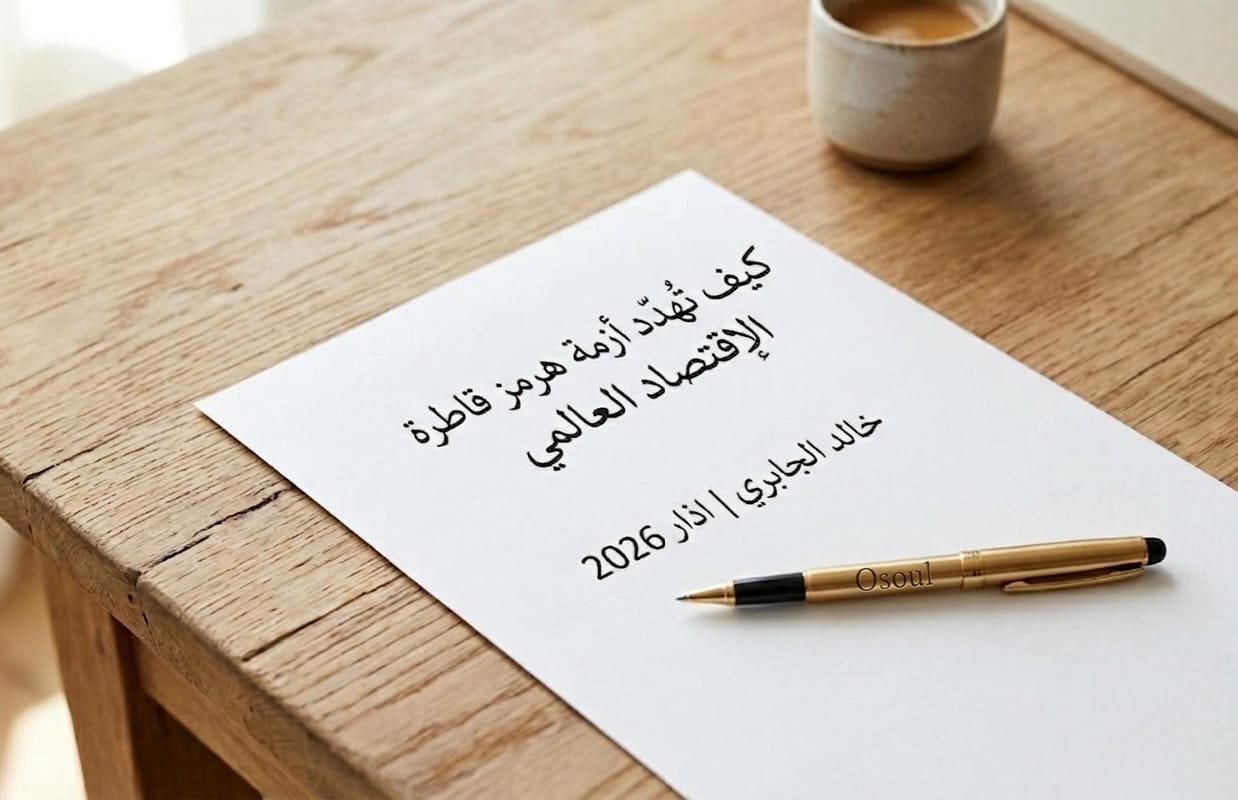 كيف تُهدّد أزمة هرمز قاطرة
الإقتصاد العالمي
خالد الجابري | اذار 2026
Osoul